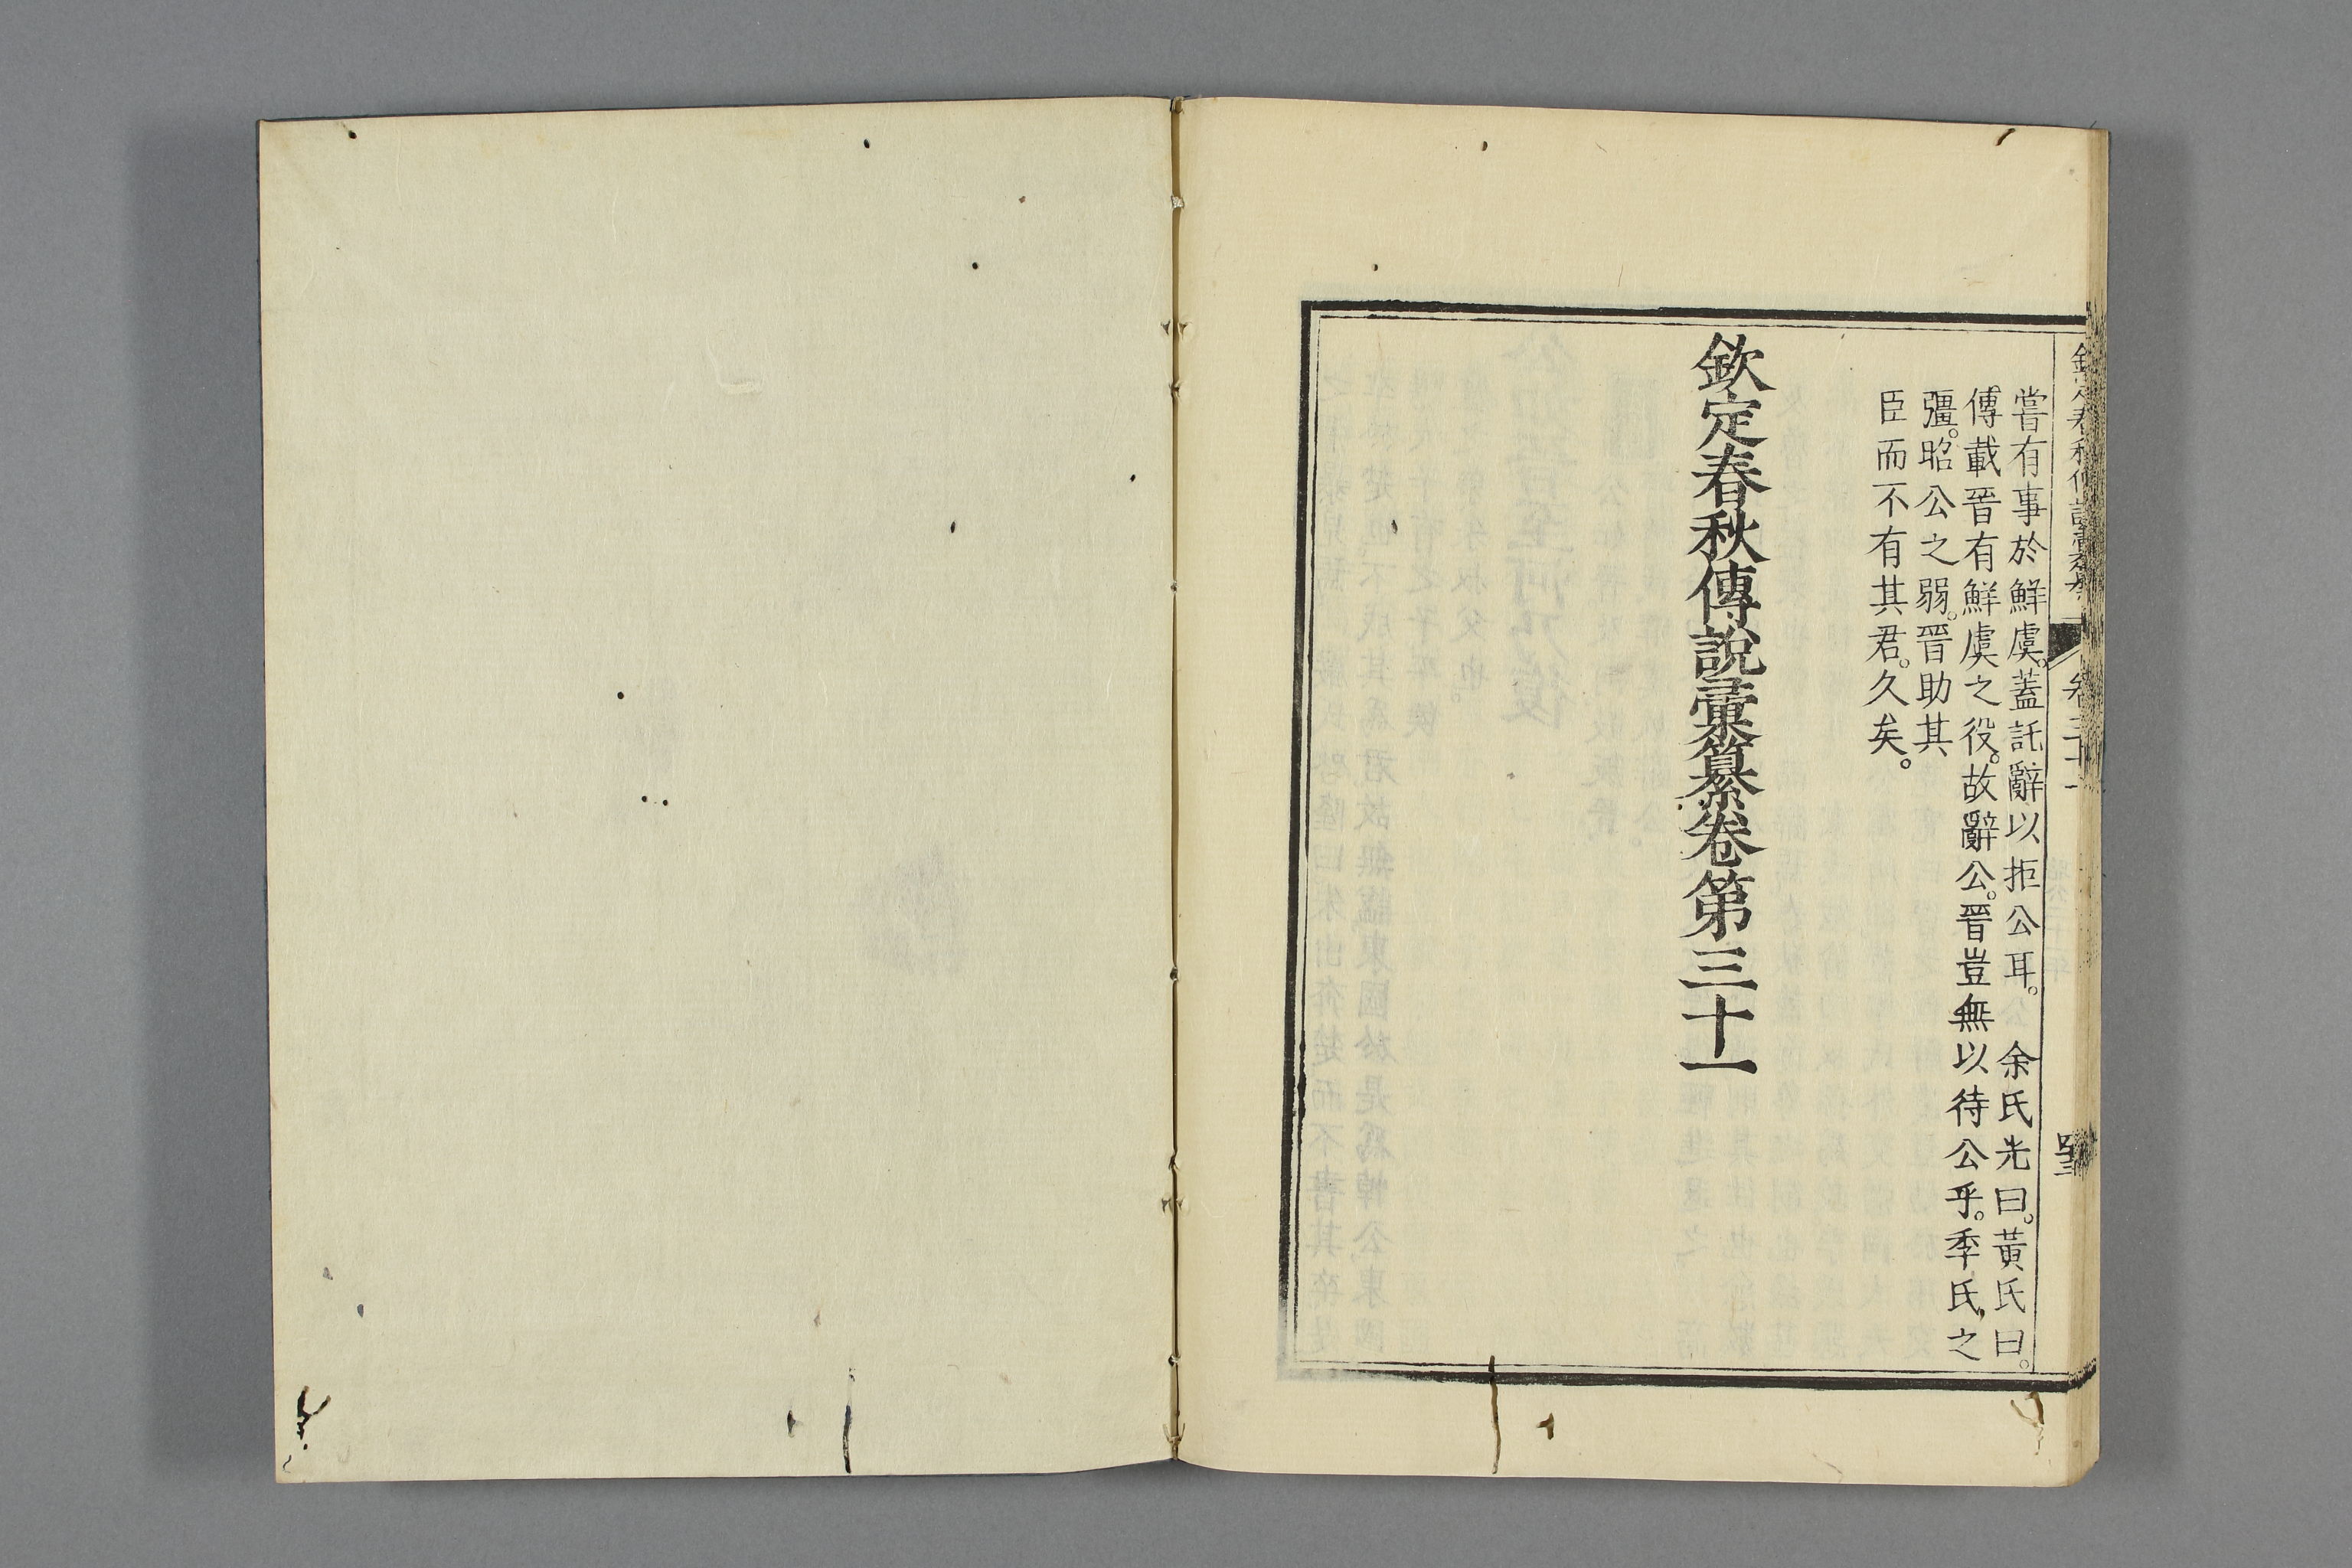 欽定春秋傳說彙纂 卷三十一
嘗有事於鮮虞。蓋託辭以拒公耳。 余氏光曰。黃氏曰。
傳載晉有鮮虞之役。故辭公。晉豈無以待公乎。季氏之
彊。昭公之弱。晉助其
臣而不有其君。久矣。
欽定春秋傳說彙纂卷第三十一